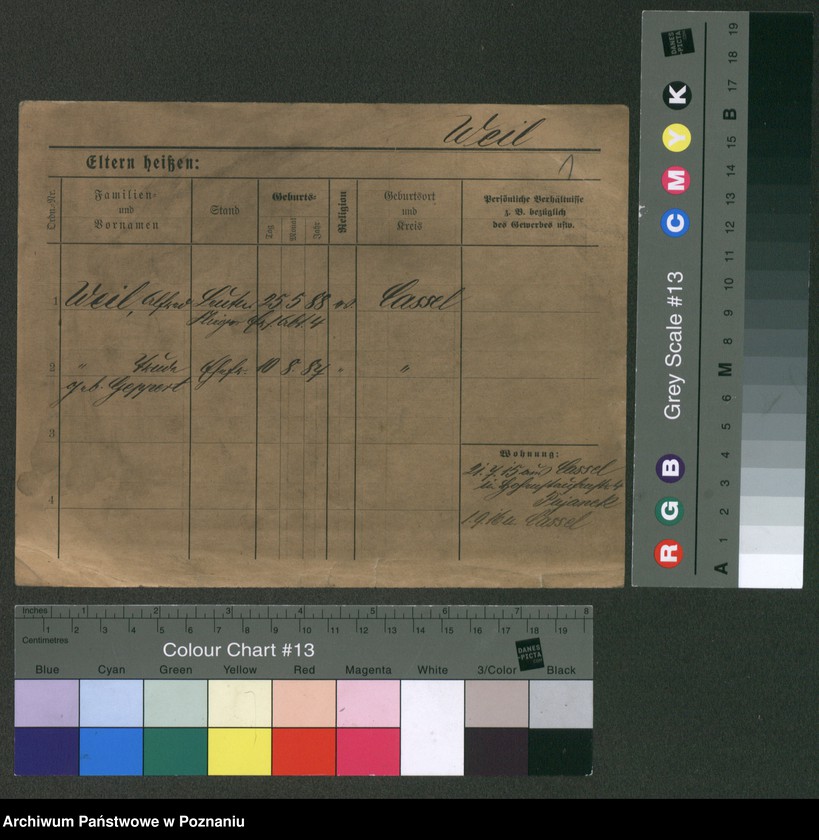 Weil
1
Eltern heißen:
Ordn.-Nr.
Familien- und Vornamen
Stand
Geburts-
Tag
Monat
Jahr
Religion
Geburtsort und Kreis
Persönliche Verhältnisse z. B. bezüglich des Gewerbes usw.
1 Weil, Alfred 25 5 88 Cassel
2 " Ehefr. 10 8 "
geb. Geppert
3
4
Wohnung:
Cassel
Cassel
DANES-PICTA
.COM
R G B C M Y K
Grey Scale #13
A 1 2 3 4 5 6 M 8 9 10 11 12 13 14 15 B 17 18 19
Inches 1 2 3 4 5 6 7 8
Centimetres 1 2 3 4 5 6 7 8 9 10 11 12 13 14 15 16 17 18 19
Colour Chart #13
DANES-PICTA
.COM
Blue Cyan Green Yellow Red Magenta White 3/Color Black
Archiwum Państwowe w Poznaniu